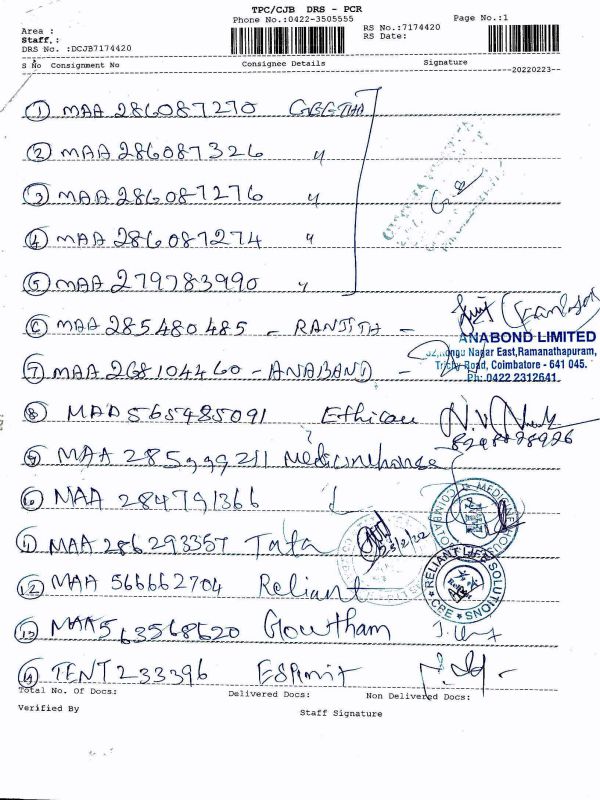 TPC/CJB DRS - PCR
Phone No.:0422-3505555 Page No.:1
Area : RS No.:7174420
Staff.: RS Date:
DRS No. :DCJB7174420
S No Consignment No Consignee Details Signature
20220223
1 MAA 286087270 GEETHA
2 MAA 286087326 "
3 MAA 286087276 "
4 MAA 286087274 "
5 MAA 279783990 "
6 MAA 285480485 - RANJITH -
ANABOND LIMITED
Nagar East,Ramanathapuram,
Trichy Road, Coimbatore - 641 045.
Ph: 0422 2312641
7 MAA 268104460 - ANABAND -
8 MAA 565485091 Ethicau
9 MAA 285999211 Medicinehouse
10 MAA 284791366
MEDICINE HOUSE COIMBATORE
11 MAA 286293357 Tata
12 MAA 566662704 Reliant
RELIANT LIFE SOLUTIONS * CBE *
13 MAA 563568620 Gowtham
14 TENT 233396
Total No. Of Docs: Delivered Docs: Non Delivered Docs:
Verified By Staff Signature